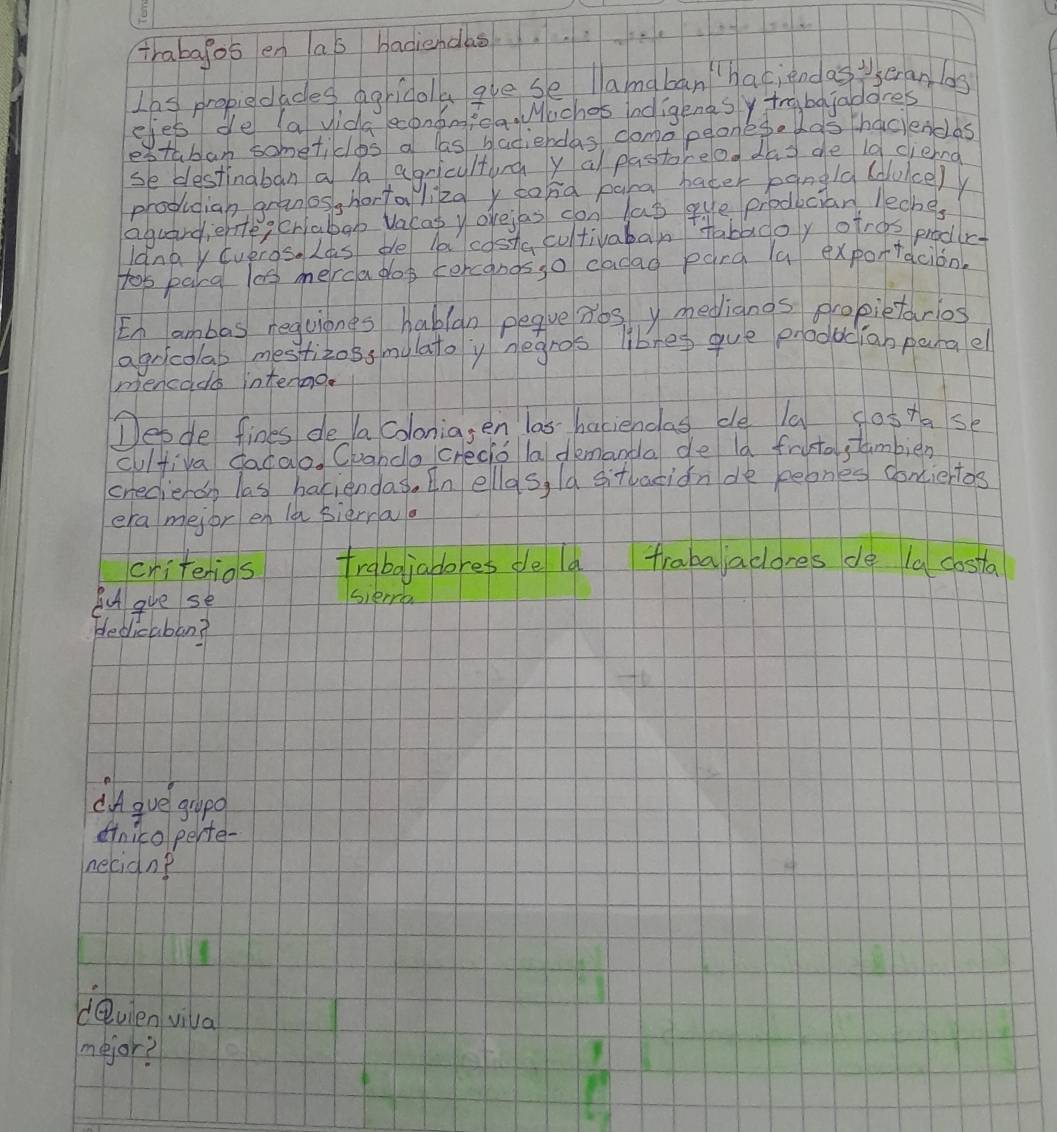 trabajos en las haciendas
Las propiedades agricola que se llamaban "haciendas", eran los
ejes de la vida económica. Muchos indígenas y trabajadores
estaban sometidos a las haciendas, como peones. Las haciendas
se destinaban a la agricultura y al pastoreo. Las de la cierra
producian granos, hortaliza y caña para hacer panela (dulce) y
aguardiente; criaban vacas y ovejas con las que producian leche,
lana y cueros. Las de la costa cultivaban tabaco y otros produc-
tos para los mercados cercanos, o cacao para la exportación.
En ambas requiones hablan pequeños y medianos propietarios
agricolas mestizos, mulato y negros libres que producian para el
mercado interno.
Desde fines de la Colonia, en las haciendas de la costa se
cultiva cacao. Cuando creció la demanda de la fruta, tambien
crecieron las haciendas. En ellas, la situación de peones conciertos
era mejor en la sierra.
criterios trabajadores de la trabajadores de la costa
¿A que se sierra
dedicaban?
¿A qué grupo
étnico perte-
necian?
¿Quien viva
mejor?